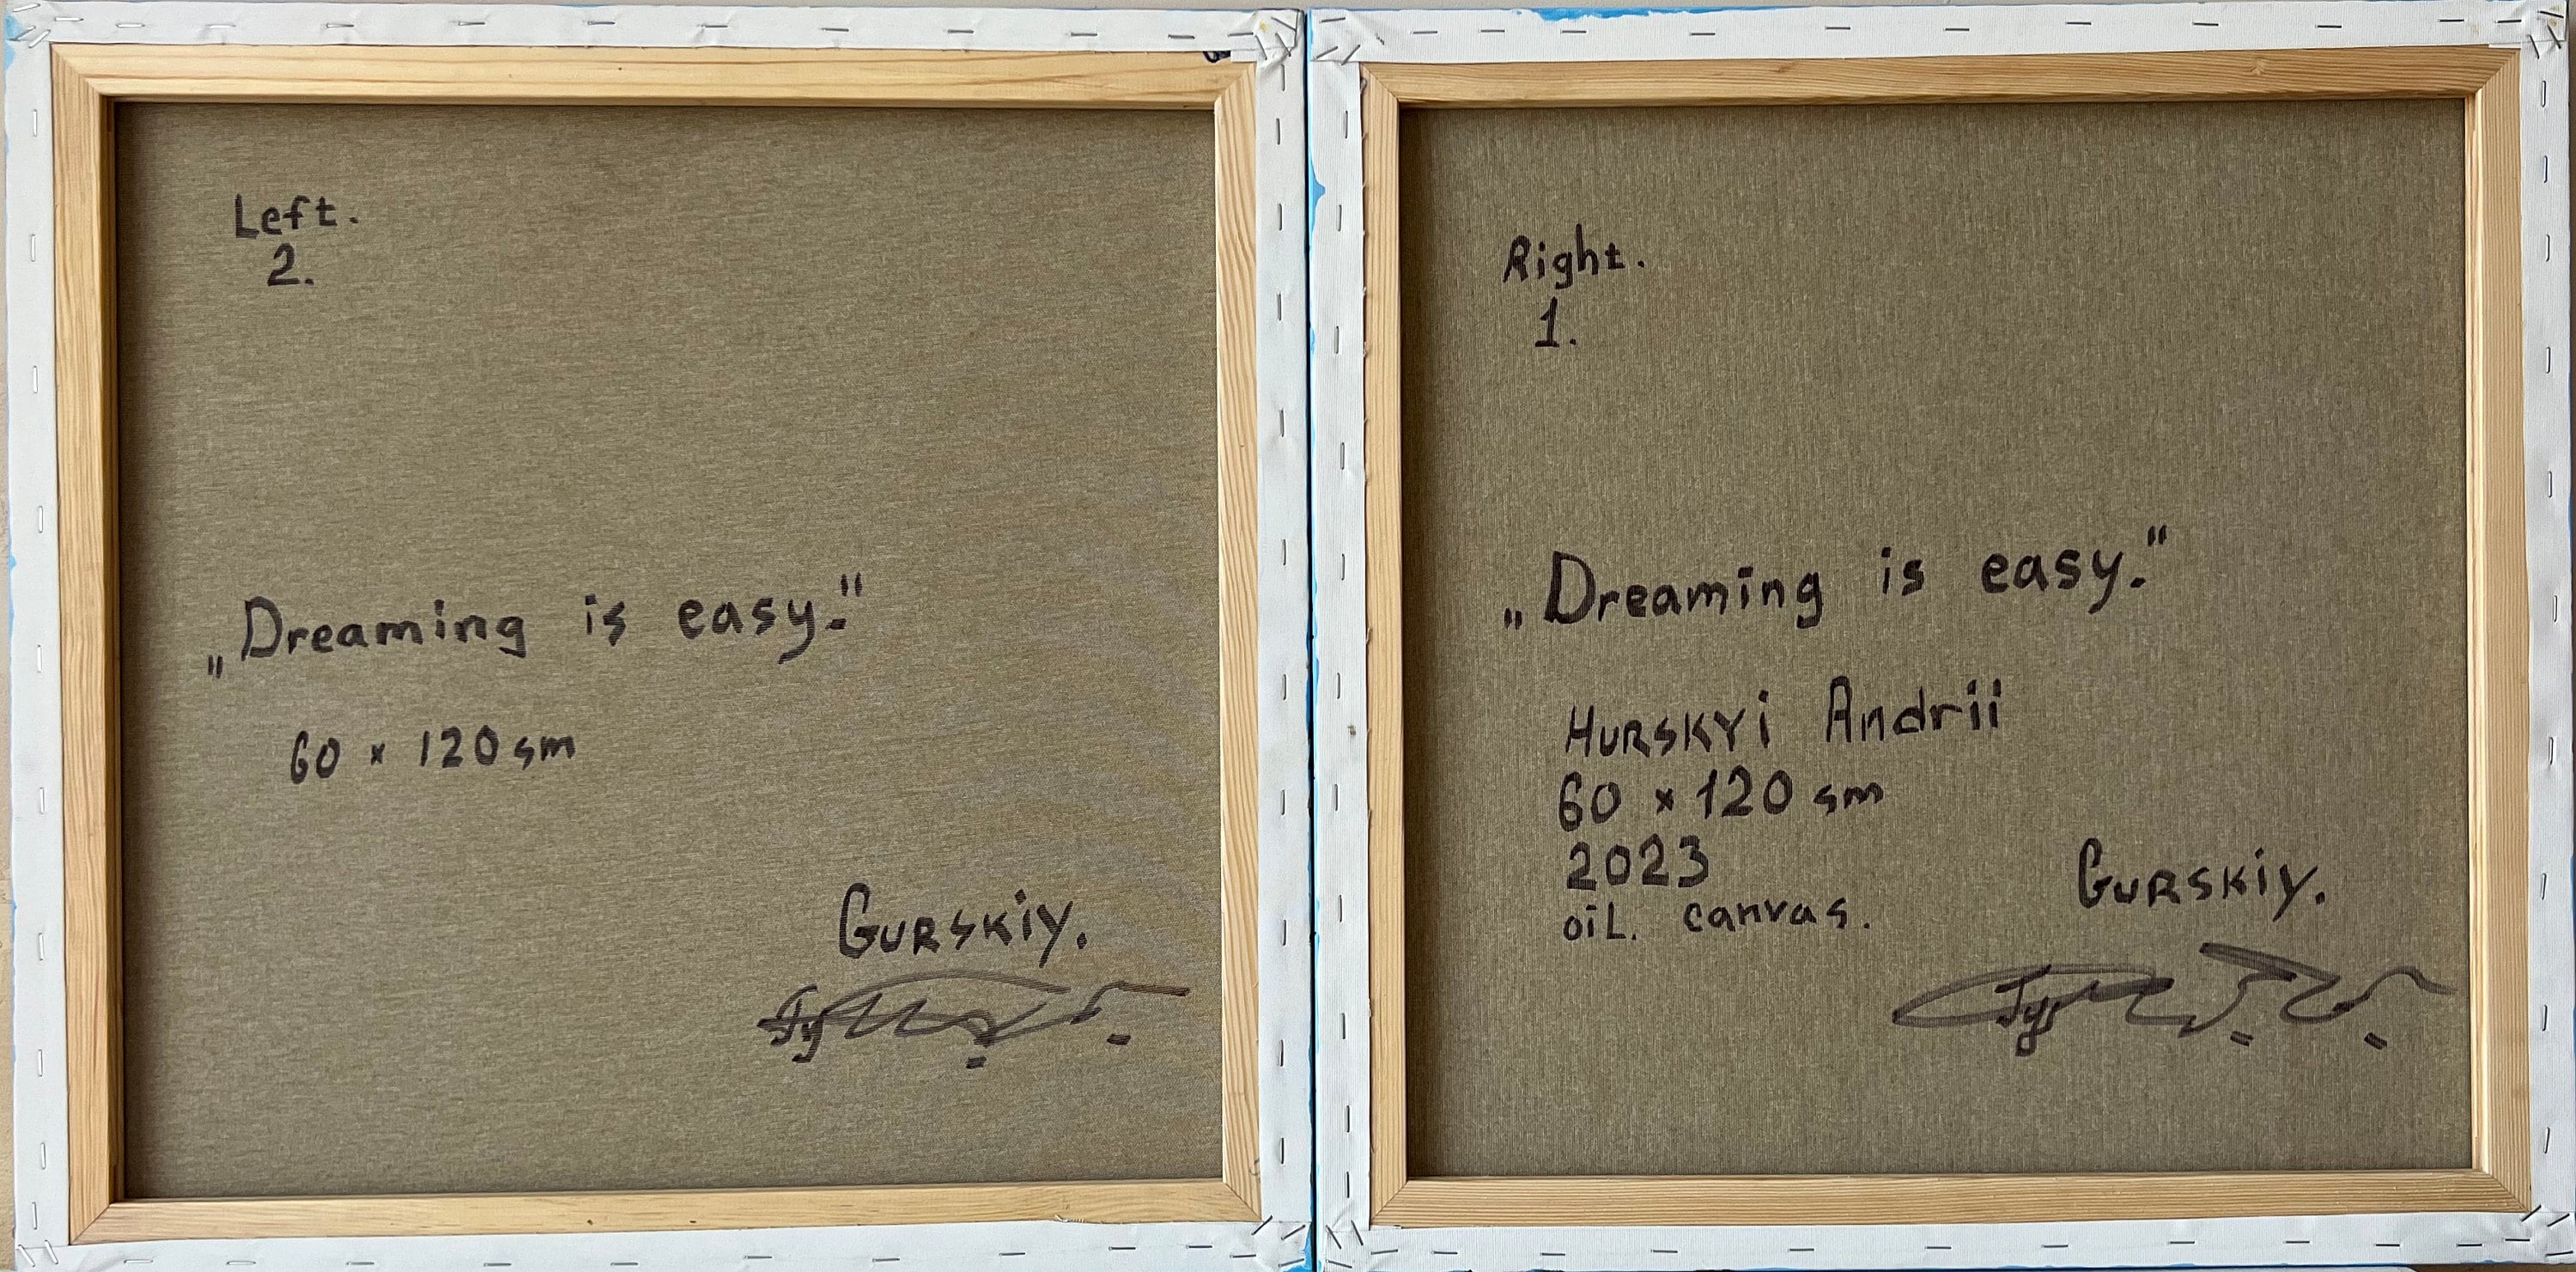 Left.
2.
„Dreaming is easy."
60 × 120 sm
GURSKiY.
Right.
1.
„Dreaming is easy."
HURSKYi Andrii
60 × 120 sm
2023
oiL. canvas.
GURSKiY.